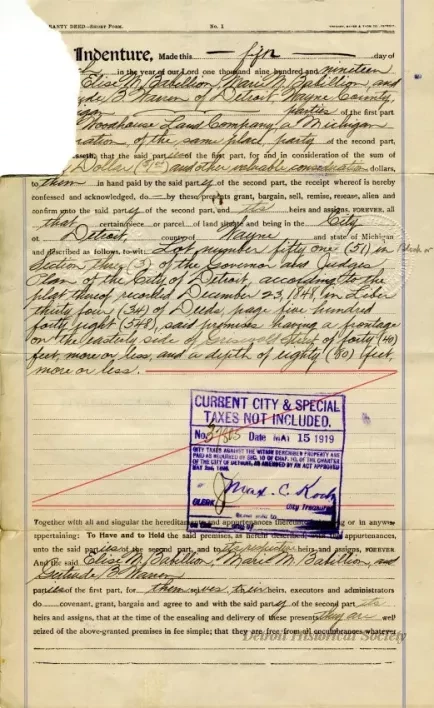 RANTY DEED—SHORT FORM. No. 1
Indenture, Made this — fifth — day of
in the year of our Lord one thousand nine hundred and nineteen
Elise M. Babillion, Marie M. Babillion, and
B. Warron of Detroit, Wayne County,
parties of the first part
Woodhouse Land Company, a Michigan
ration, of the same place, party of the second part,
esseth, that the said parties of the first part, for and in consideration of the sum of
Dollar ($1.00) and other valuable consideration dollars,
to them in hand paid by the said party of the second part, the receipt whereof is hereby
confessed and acknowledged, do — by these presents grant, bargain, sell, remise, release, alien and
confirm unto the said party of the second part, and its heirs and assigns, FOREVER, all
that certain piece or parcel of land situate and being in the City
of Detroit, county of Wayne and state of Michigan
and described as follows, to-wit: Lot number fifty one (51) in
Section three (3) of the Governor and Judges
Plan of the City of Detroit, according to the
plat thereof recorded December 23, 1848, in Liber
thirty four (34) of Deeds, page five hundred
forty eight (548), said premises having a frontage
on the easterly side of Griswold Street of forty (40)
feet, more or less, and a depth of eighty (80) feet,
more or less.
CURRENT CITY & SPECIAL
TAXES NOT INCLUDED.
No. Date MAY 15 1919
CITY TAXES AGAINST THE WITHIN DESCRIBED PROPERTY ARE
PAID AS REQUIRED BY SEC. 10 OF CHAP. 10, OF THE CHARTER
OF THE CITY OF DETROIT, AS AMENDED BY AN ACT APPROVED
Max. C. Koch
CLERK City Treasurer
Together with all and singular the hereditaments and appurtenances thereunto belonging or in anywise
appertaining: To Have and to Hold the said premises, as herein described, with the appurtenances,
unto the said parties of the second part, and to its respective heirs and assigns, FOREVER.
And the said Elise M. Babillion, Marie M. Babillion, and
Gertrude B. Warron
parties of the first part, for themselves, their heirs, executors and administrators
do covenant, grant, bargain and agree to and with the said party of the second part its
heirs and assigns, that at the time of the ensealing and delivery of these presents they are well
seized of the above-granted premises in fee simple; that they are free from all encumbrances whatever
Detroit Historical Society